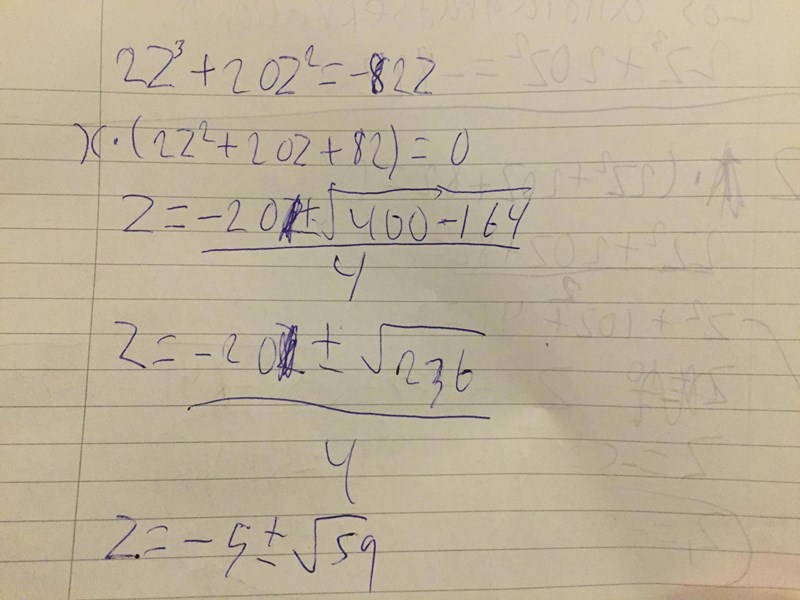 2Z³ + 20Z² = -82Z
x · (2Z² + 20Z + 82) = 0
Z = (-20 ± √(400 - 164)) / 4
Z = (-20 ± √236) / 4
Z = -5 ± √59